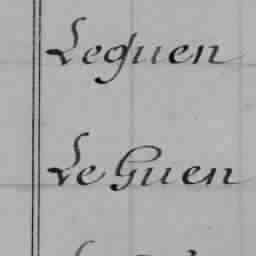 Leguen
Le Guen